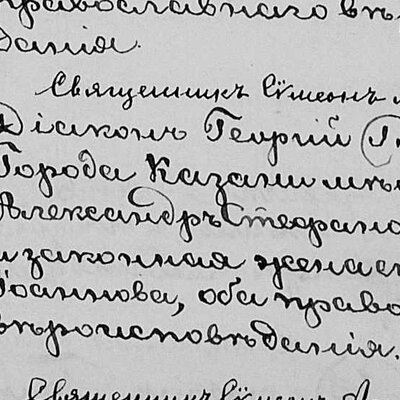 православнаго вѣ
данія.
Священникъ Сѵмеонъ
Діаконъ Георгій
Города Казани мѣ
Александръ Стефано
и законная жена е
Іоаннова, оба право
вѣроисповѣданія.
Священникъ Сѵмеонъ